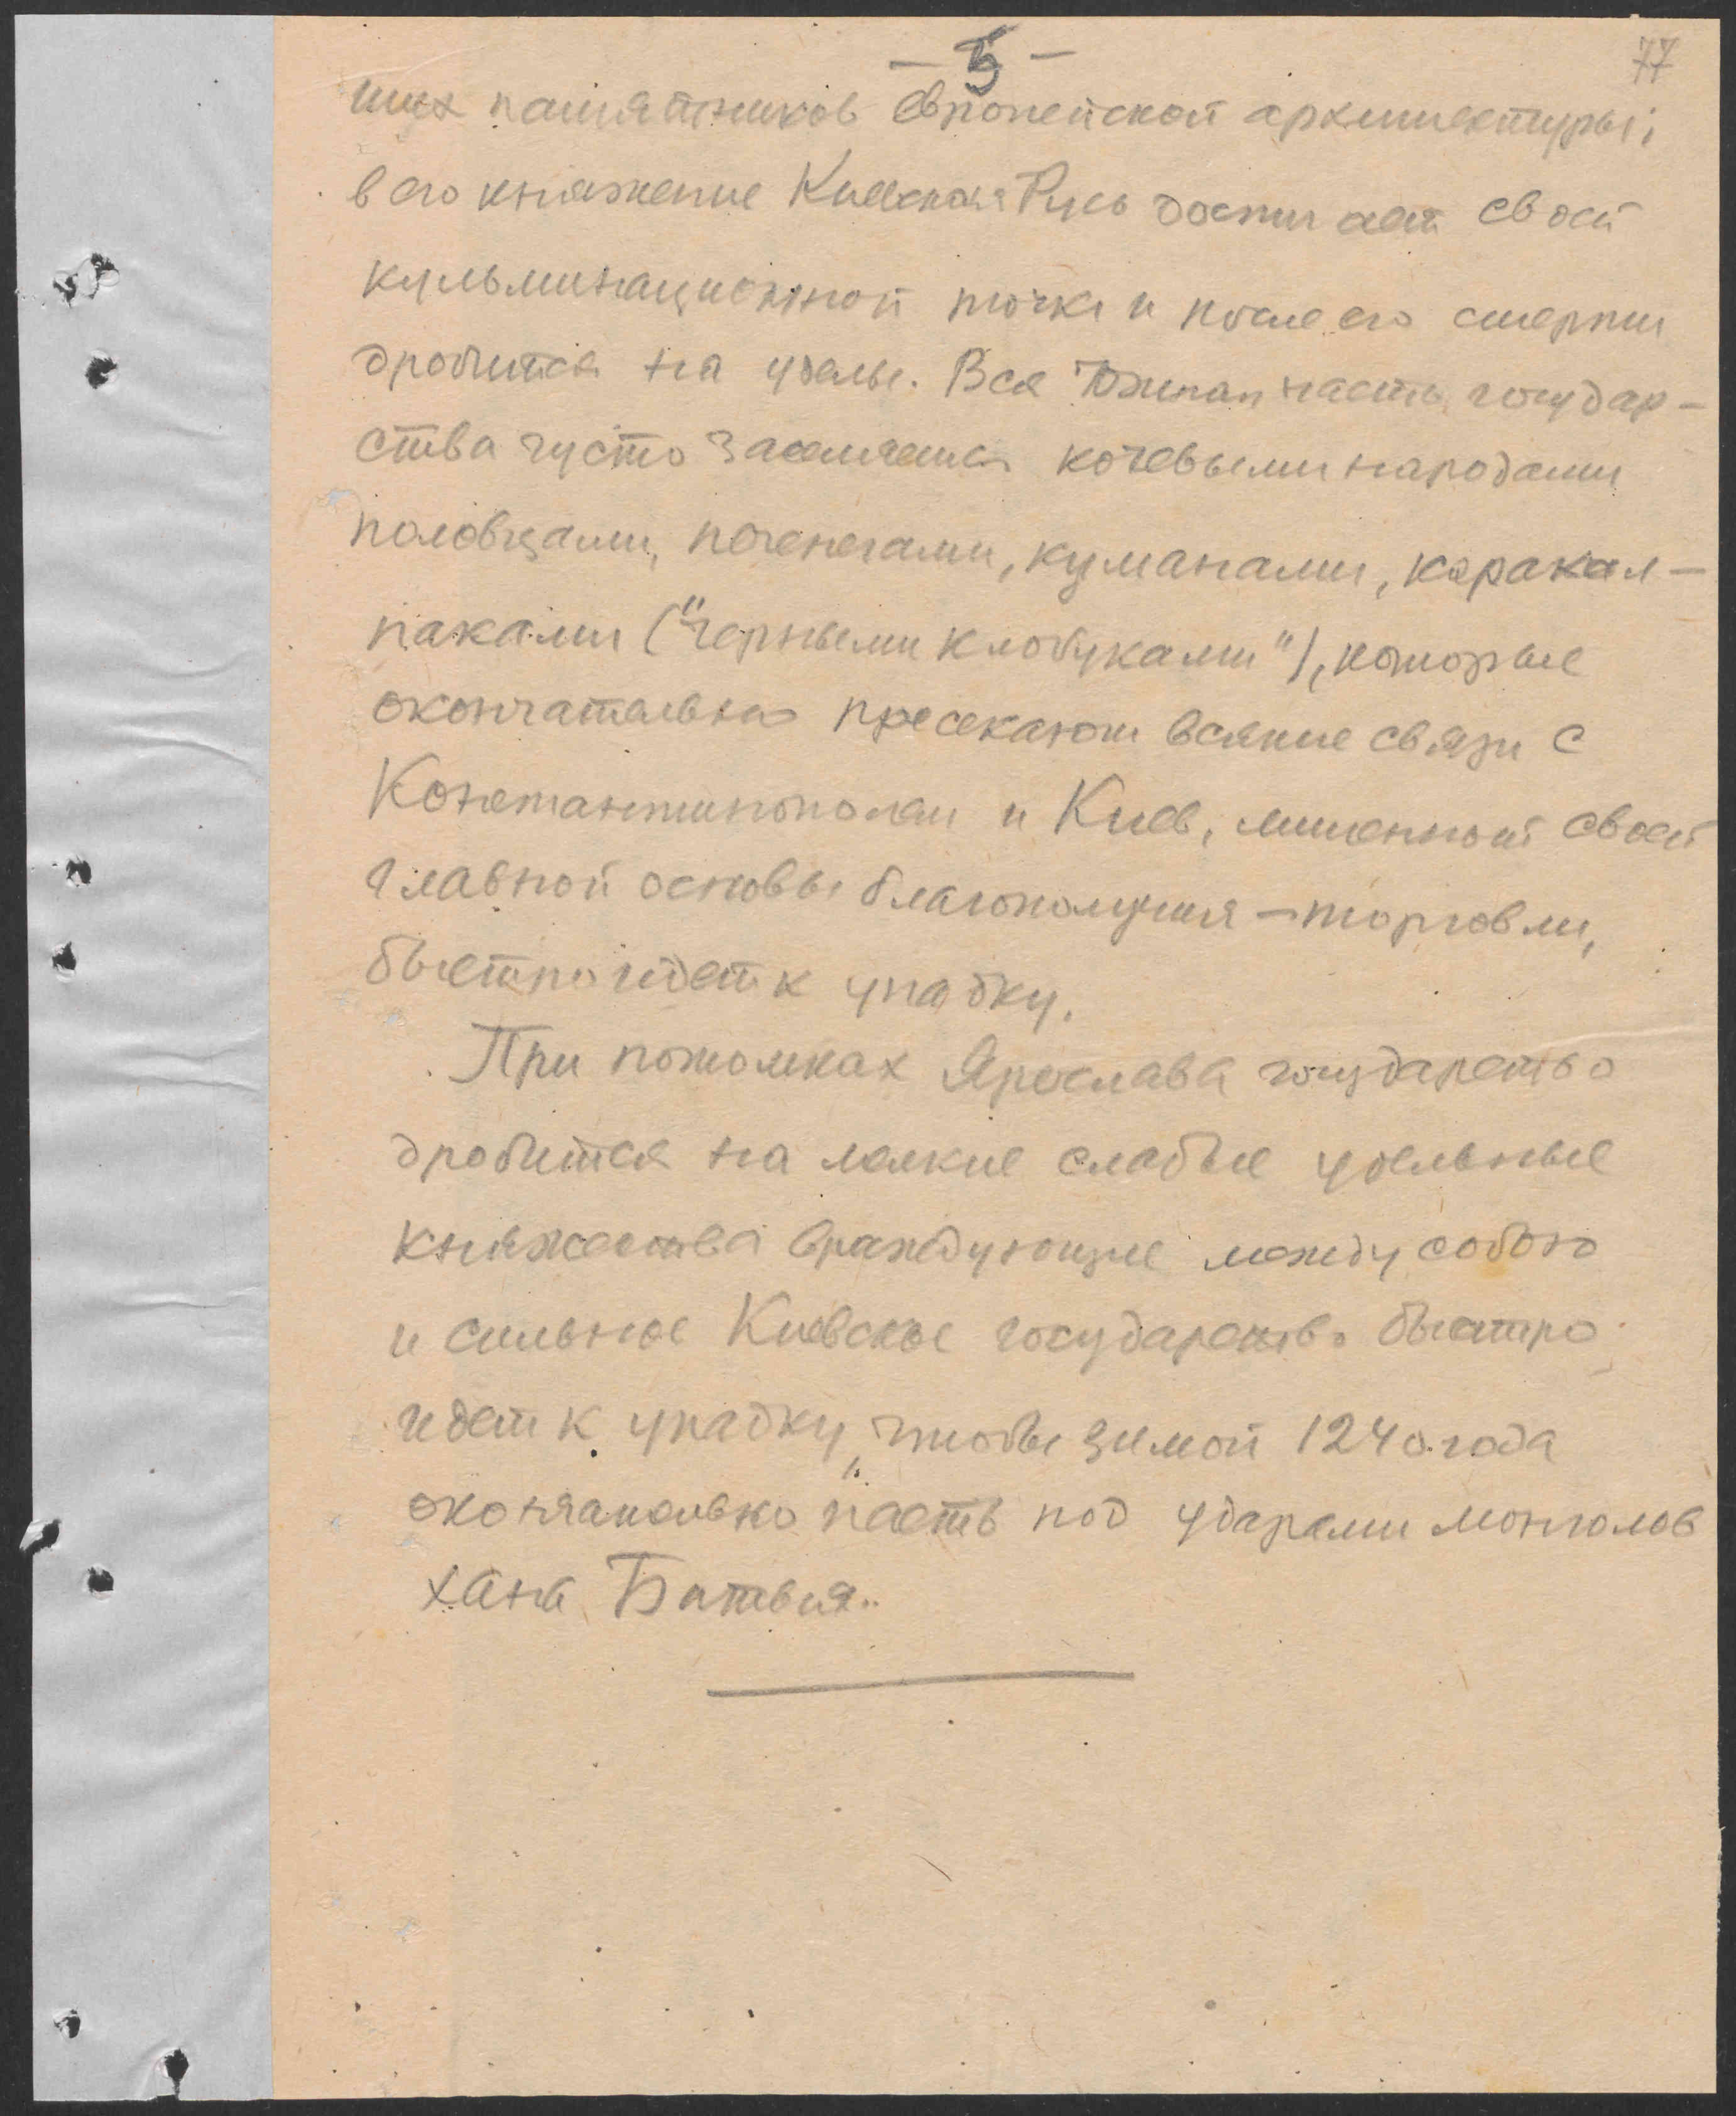 - 5 -
77
ших памятников европейской архитектуры;
в его княжение Киевская Русь достигает своей
кульминационной точки и после его смерти
дробится на уделы. Вся Южная часть государ-
ства густо заселяется кочевыми народами
половцами, печенегами, куманами, каракал-
паками ("черными клобуками"), которые
окончательно пресекают всякие связи с
Константинополем и Киев, лишенный своей
главной основы благополучия - торговли,
быстро идет к упадку.
При потомках Ярослава государство
дробится на мелкие слабые удельные
княжества враждующие между собою
и сильное Киевское государство быстро
идет к упадку, чтобы зимой 1240 года
окончательно пасть под ударами монголов
хана Батыя.